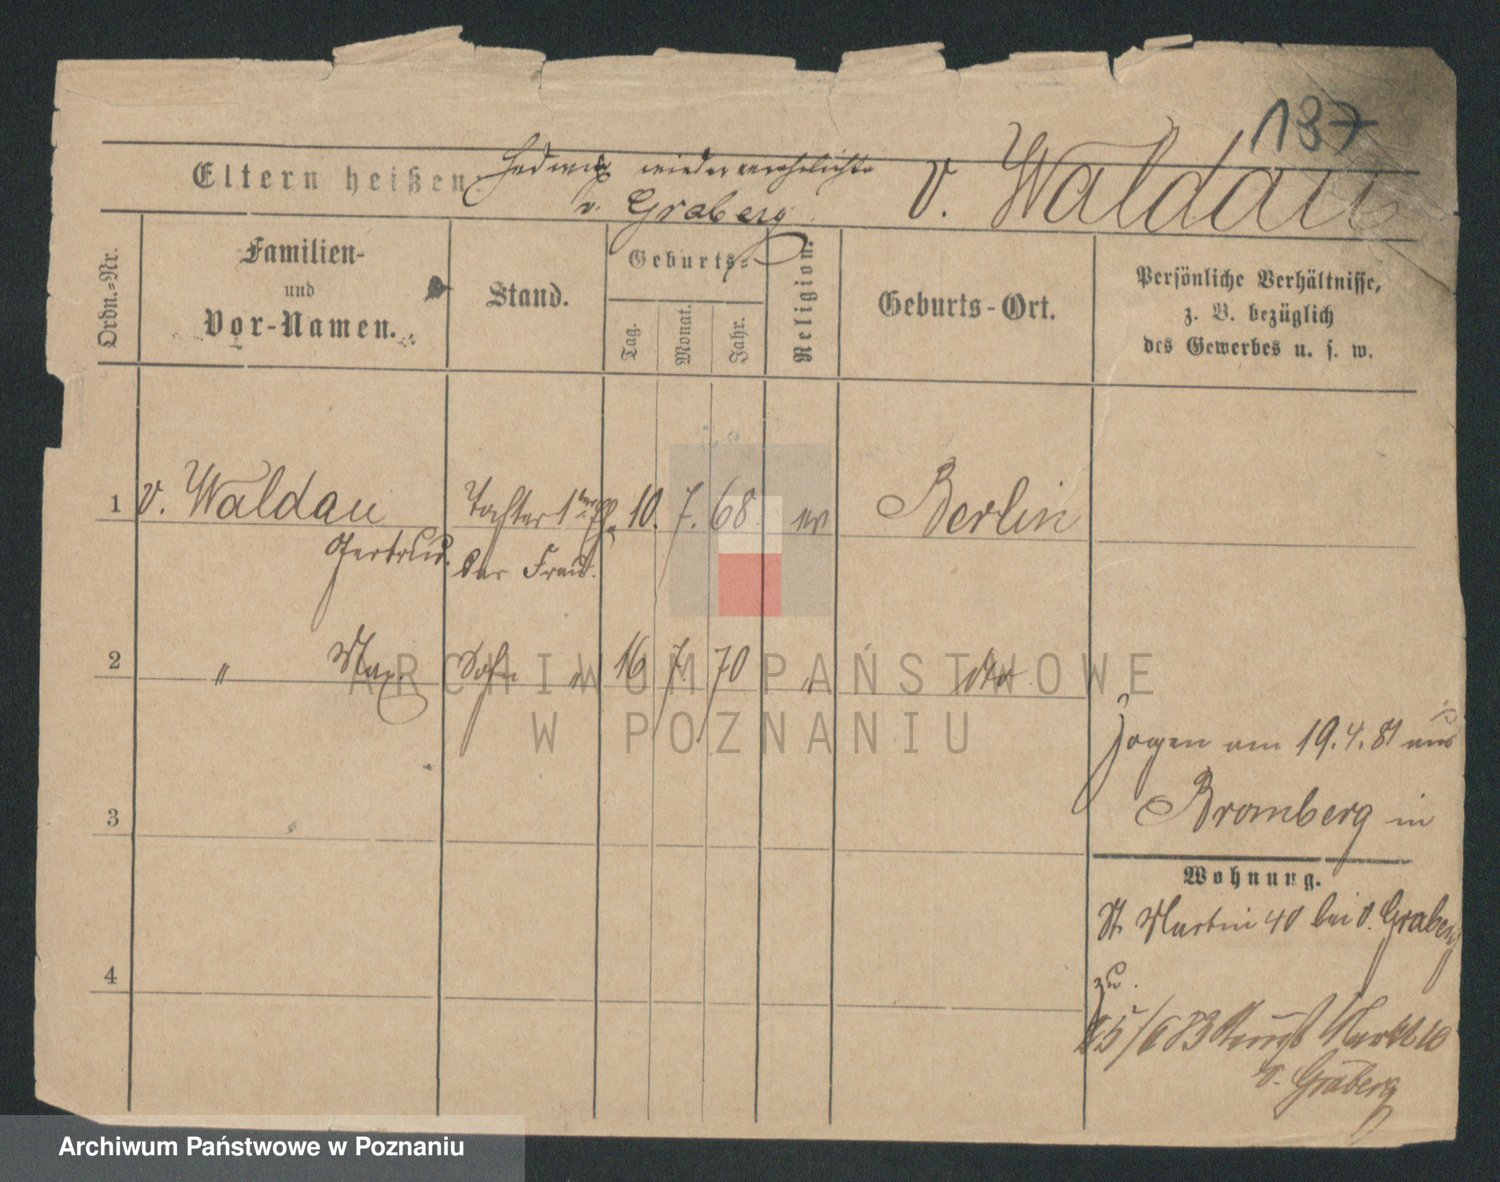 137
Eltern heißen: Hedwig wiederverehelichte v. Waldau
v. Graberg
Ordn.=Nr.
Familien-
und
Vor-Namen.
Stand.
Geburts-
Tag.
Monat.
Jahr.
Religion.
Geburts-Ort.
Persönliche Verhältnisse,
z. B. bezüglich
des Gewerbes u. s. w.
1 v. Waldau Tochter 1ter 10. 7. 68. ev Berlin
Gertrud. der Frau.
2 " Max. Sohn " 16 7. 70 " dto
zogen am 19.4.81 aus
3
Bromberg in
Wohnung.
St. Martin 40 bei v. Graberg
4
zu.
25/6 83 Markt 10
v. Graberg
ARCHIWUM PAŃSTWOWE
W POZNANIU
Archiwum Państwowe w Poznaniu